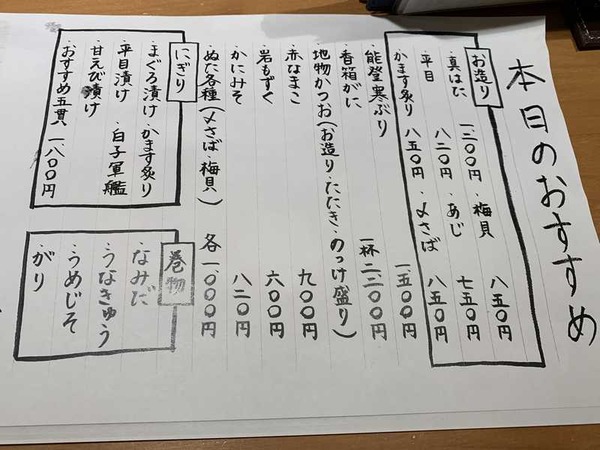 本日のおすすめ
お造り
・真はた 一二〇〇円 ・梅貝 八五〇円
・平目 八二〇円 ・あじ 七五〇円
・かます炙り 八五〇円 ・〆さば 八五〇円
・能登寒ぶり 一五〇〇円
・香箱がに 一杯二二〇〇円
・地物かつお(お造り・たたき・のっけ盛り)
・赤なまこ 九〇〇円
・岩もずく 六〇〇円
・かにみそ 八二〇円
・ぬた各種(〆さば・梅貝) 各一〇〇〇円
にぎり
・まぐろ漬け・かます炙り
・平目漬け ・白子軍艦
・甘えび漬け
・おすすめ五貫 一八〇〇円
巻物
・なみだ
・うなきゅう
・うめじそ
・がり